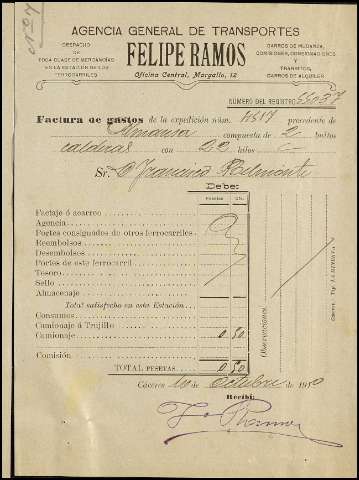 AGENCIA GENERAL DE TRANSPORTES
DESPACHO
DE
TODA CLASE DE MERCANCÍAS
EN LA ESTACIÓN DE LOS
FERROCARRILES
FELIPE RAMOS
Oficina Central, Margallo, 12
CARROS DE MUDANZA,
COMISIONES, CONSIGNACIONES
Y
TRANSITOS,
CARROS DE ALQUILER
NÚMERO DEL REGISTRO
Factura de gastos de la expedición núm. procedente de
Almansa compuesta de 2 bultos
calderas con 22 kilos
Sr. D Francisco Belmonte
Debe:
Pesetas Cts.
Factaje ó acarreo
Agencia
Portes consignados de otros ferrocarriles
Reembolsos
Desembolsos
Portes de este ferrocarril
Tesoro
Sello
Almacenaje
Total satisfecho en esta Estación
Consumos
Camionaje á Trujillo
Camionaje 0 50
Comisión
TOTAL PESETAS 0 50
Observaciones
Cáceres. Tip. LA MINERVA
Cáceres 10 de Octubre de 1910
Recibí:
F Ramos